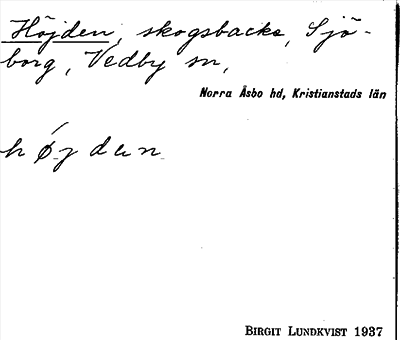 Höjden, skogsbacke, Sjö-
borg, Vedby sn,
Norra Åsbo hd, Kristianstads län
BIRGIT LUNDKVIST 1937